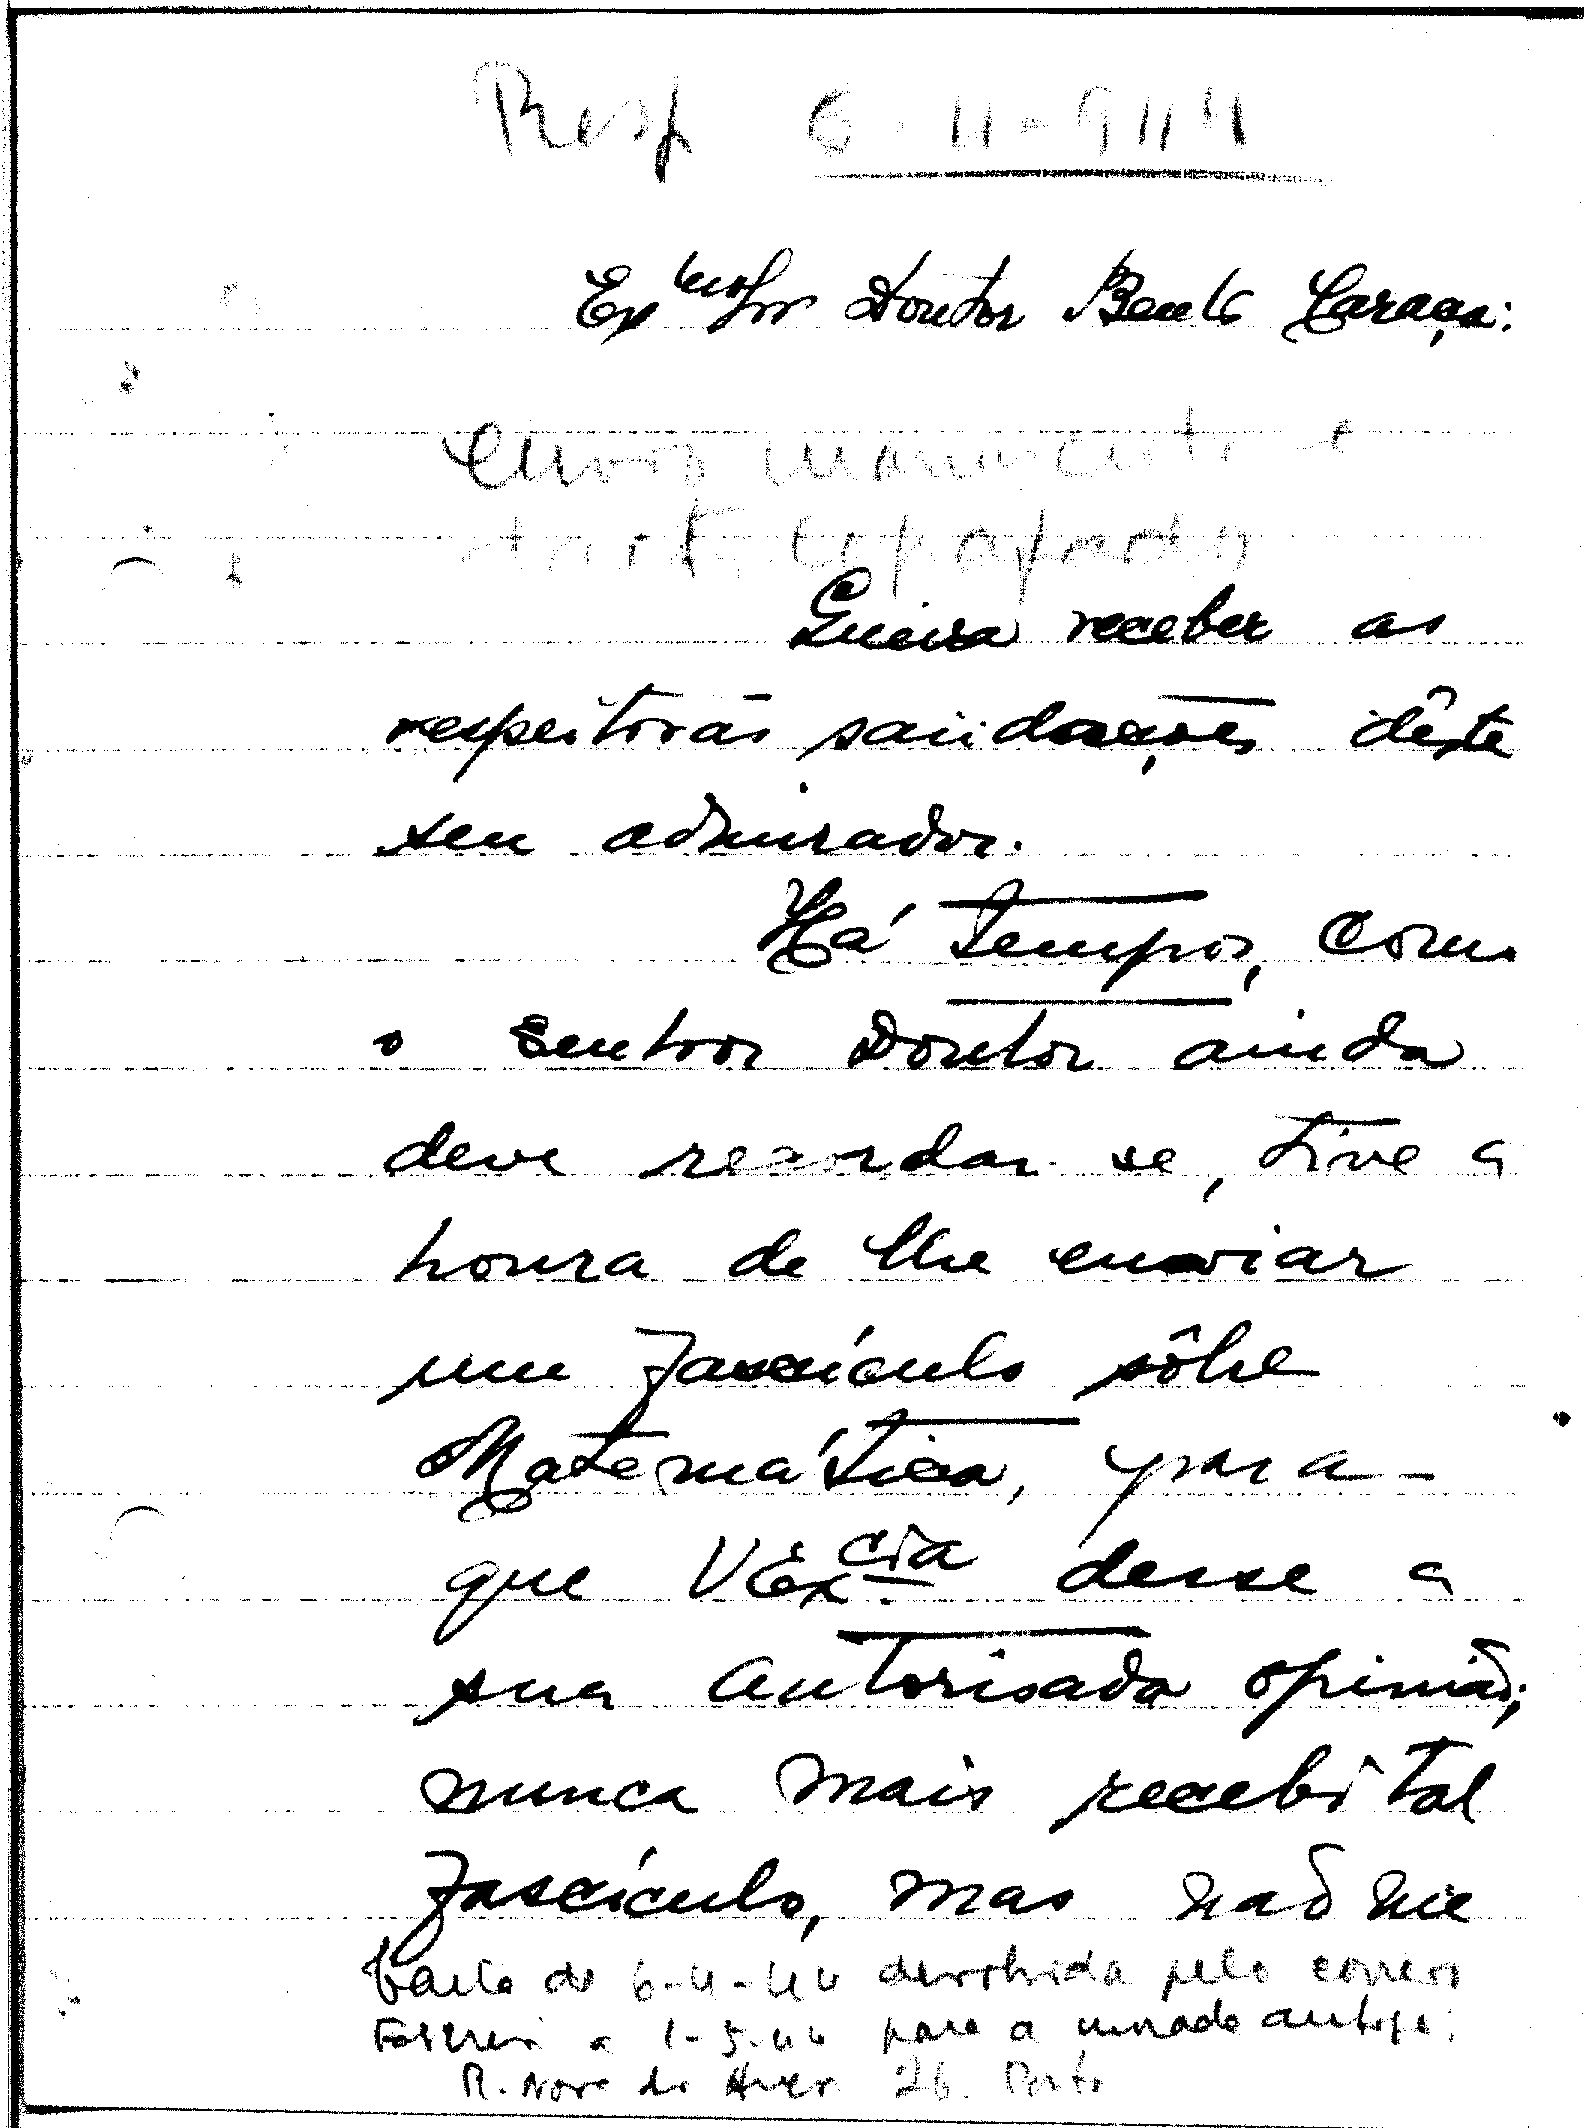 Resp 6-4-944
Ex.mo Snr Doutor Bento Caraça:
Enviou manuscrito e
Queira receber as
respeitosas saüdações dêste
seu admirador.
Há Tempos, como
o Senhor Doutor ainda
deve recordar-se, tive a
honra de lhe enviar
um fascículo sôbre
Matemática, para
que V Ex.cia desse a
sua autorisada opinião;
nunca mais recebi tal
fascículo, mas não me
Carta de 6-4-44 devolvida pelo correio
Escrevi a 1-5-44 para a morada antiga:
R. Nova do 26. Porto